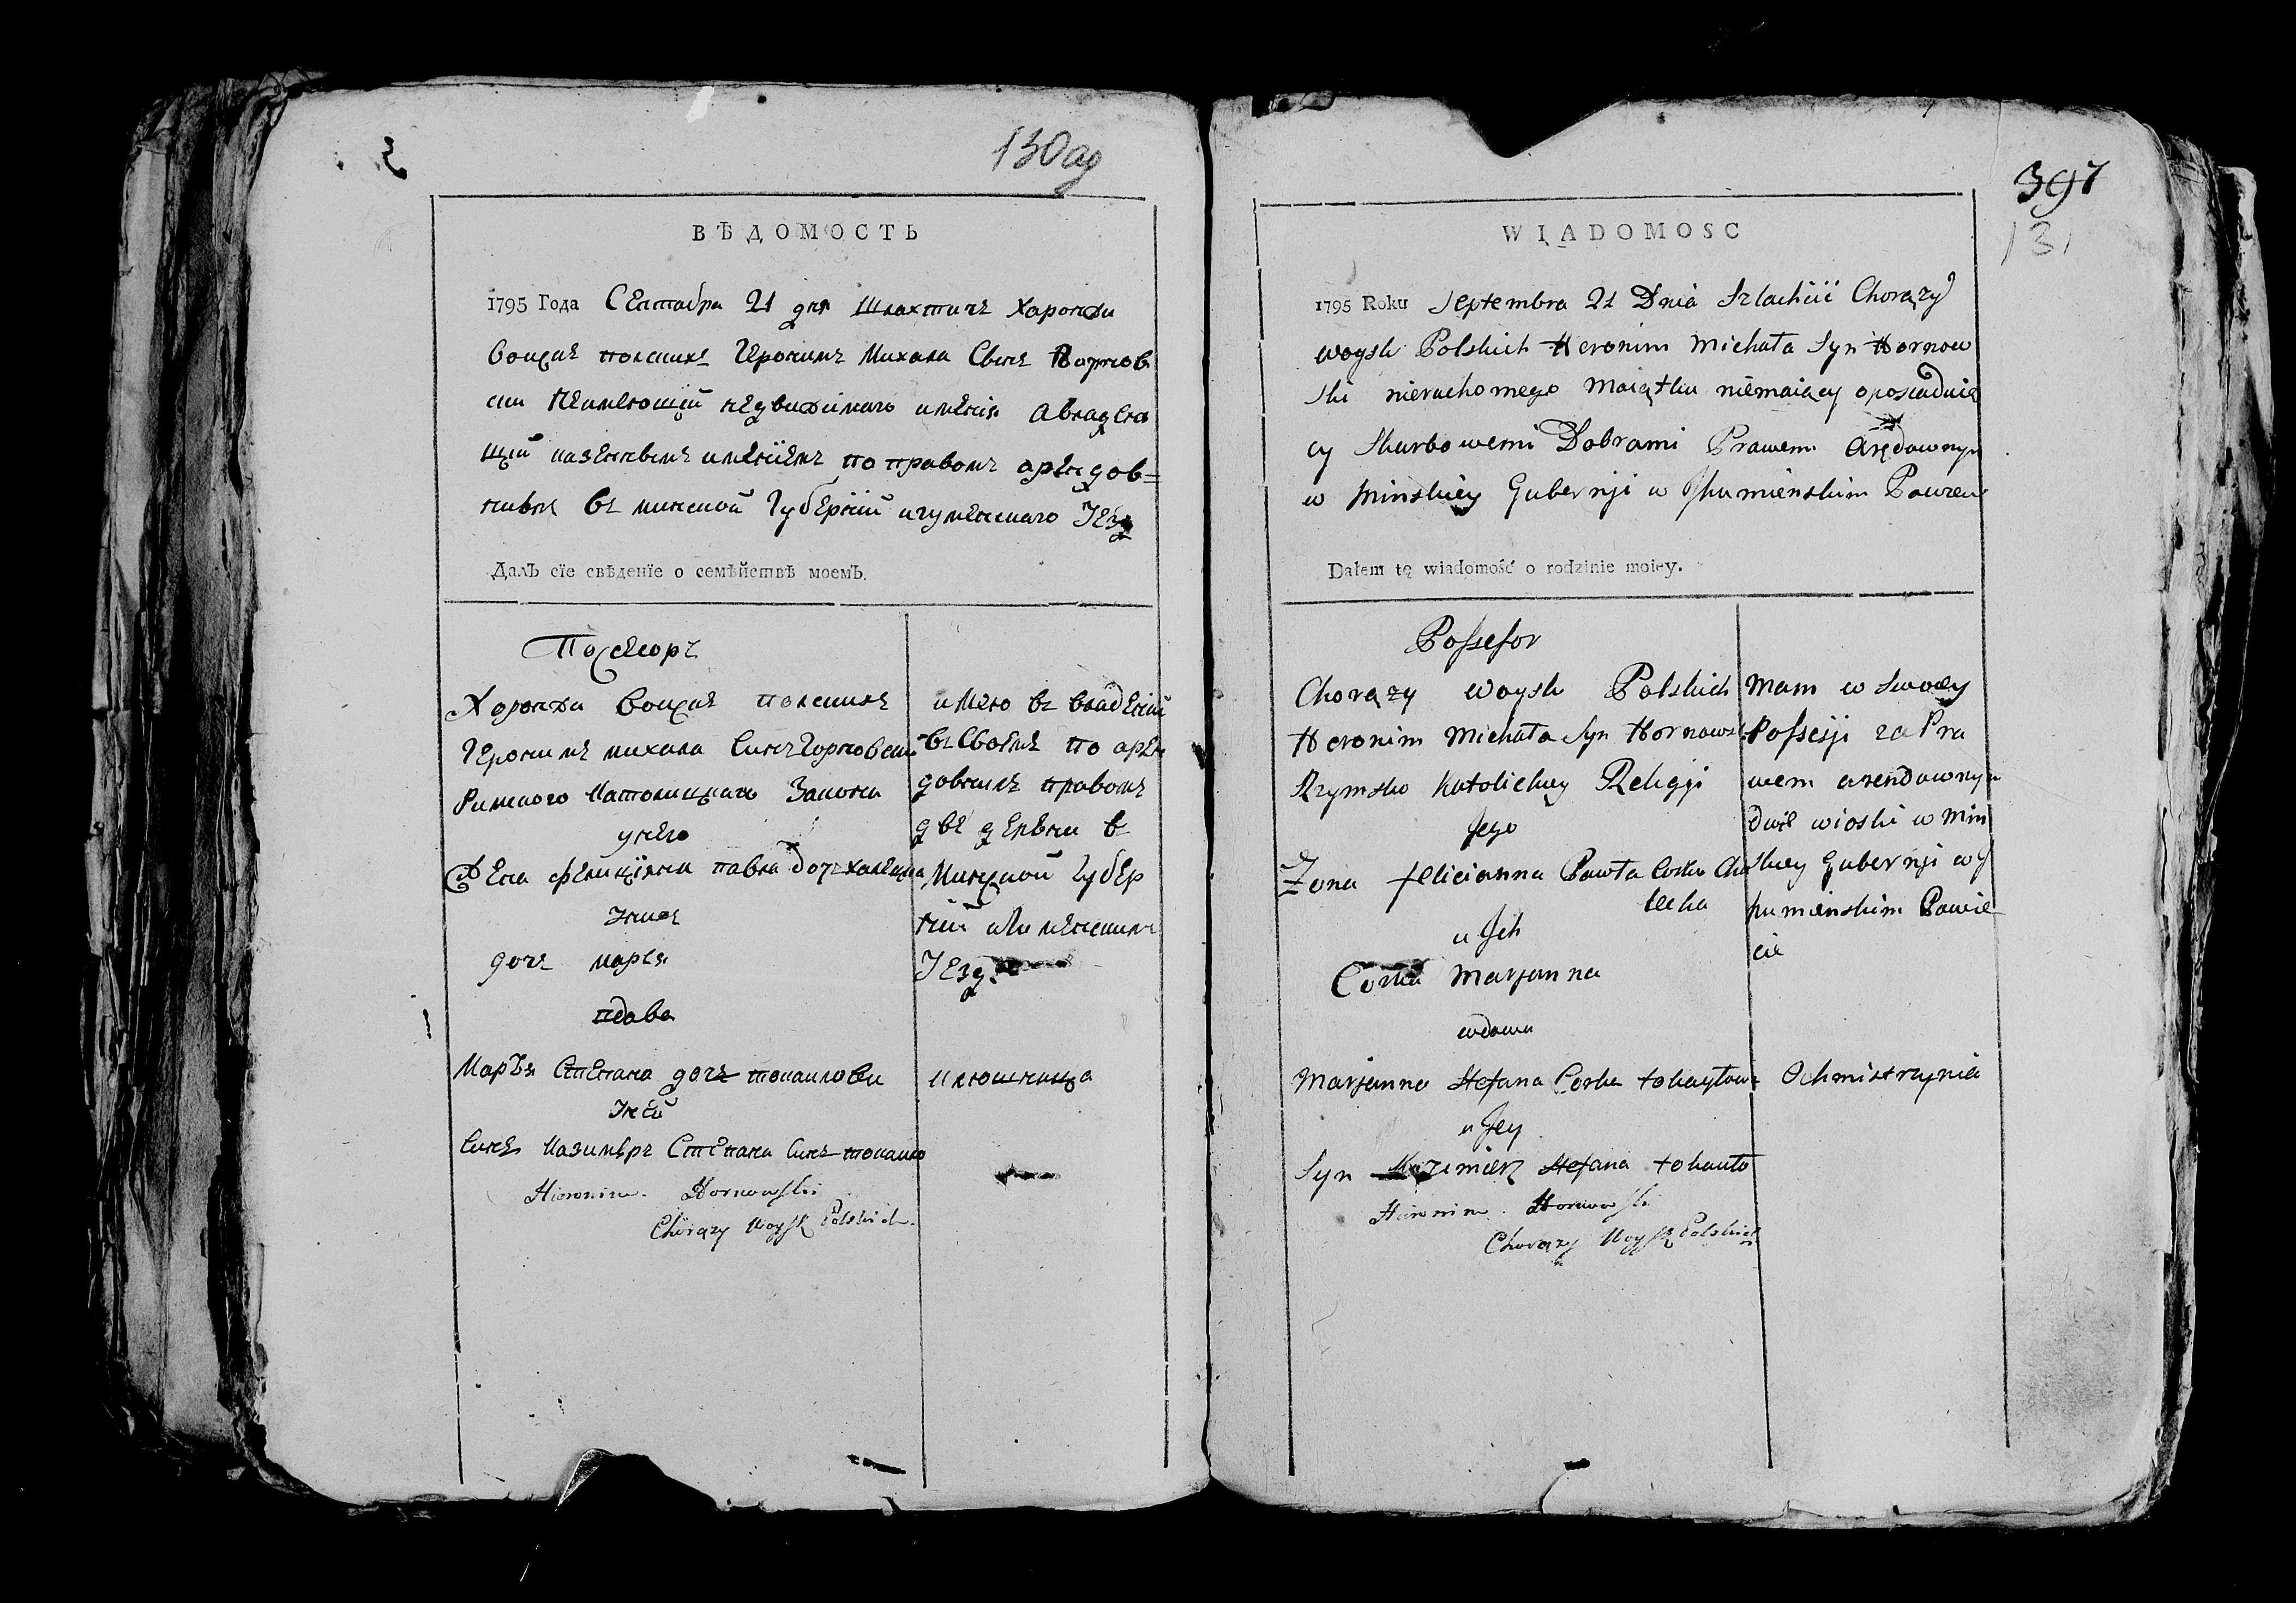 130 ад
ВѢДОМОСТЬ
1795 Года Сентабра 21 дня Шляхтичъ Харонжи
воискъ полскихъ Геронимъ Михала Сынъ Горнов
ски неимеющїй недвижимаго имения авладею
щїй казеннымъ имениемъ по правомъ арендов=
нымъ въ минской Губернїй игуменскаго Уезд
Далъ сїе свѣденїе о семѣйствѣ моемъ.
Посесоръ
Хоронжи воискъ полскихъ
Геронимъ михала Синъ Горновски
Римского Католицкаго Закона
унего
Жена фелицїяна павла дочъ халецка
Унихъ
дочъ марья
вдова
Марья Степана дочъ токаилови
Уней
Синъ Казимѣръ Степана Синъ токаило
имею въ владении
въ своемъ по арен
довнымъ правомъ
две деревни в
Минской Губер
нїй
Уезд.
ключница
Hieronim. Hornowski
Chorązy Woysk Polskich.
397
131
WIADOMOSC
1795 Roku Septembra 21 Dnia Szlachcic Chorązy
woysk Polskich Heronim Michała Syn Hornow
ski nieruchomego Maiątku niemaiący oposiadaią
cy Skurbowemi Dobrami Prawem Aręდownym
w Minskiey Gubernji w Jhumienskim Powiec
Dałem tę wiadomość o rodzinie moiey.
Possesor
Chorązy woysk Polskich
Heronim Michała Syn Hornows
Rzymsko Katolickiey Religji
Jego
Zona Felicianna Pawła Corka Cha
lecka
u Jch
Corka Marjanna
wdowa
Marjanna Stefana Corka tokayłow
u Jey
Syn Kazimierz Stefana tokaiło
Mam w swoiey
Possesji za Pra
wem arendownym
dwie wioski w Min
skiey Gubernji w J
humienskim Powie
cie
Ochmistrzynia
Hieronim. Hornowski
Chorązy Woysk Polskich